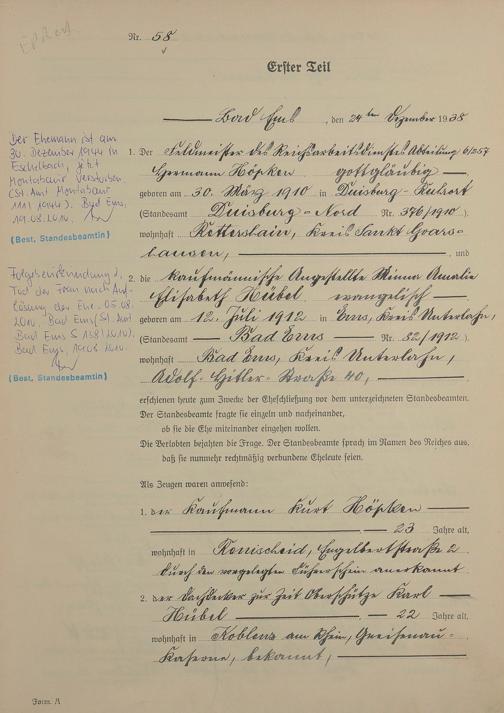 Nr. 58
Erster Teil
Bad Ems, den 24ten Dezember 1938
Der Ehemann ist am
30. Dezember 1944 in
Eschelbach, jetzt
Montabaur verstorben
(St. Amt Montabaur
111/1944). Bad Ems,
19.08.2010.
(Best, Standesbeamtin)
Folgebeurkundung 2,
Tod der Frau nach Auf-
lösung der Ehe. 05.08.
2010, Bad Ems (St. Amt
Bad Ems S 158/2010).
Bad Ems, 19.08.2010.
(Best, Standesbeamtin)
1. Der Feldmeister des Reichsarbeitsdienstes Abteilung 6/257
Hermann Höpken gottgläubig
geboren am 30. März 1910 in Duisburg-Ruhrort
(Standesamt Duisburg-Nord Nr. 376/1910).
wohnhaft Rettershain, Kreis Sankt Goars-
hausen, und
2. die kaufmännische Angestellte Minna Amalie
Elisabeth Hübel evangelisch
geboren am 12. Juli 1912 in Ems, Kreis Unterlahn,
(Standesamt Bad Ems Nr. 82/1912).
wohnhaft Bad Ems, Kreis Unterlahn,
Adolf-Hitler-Straße 40,
erschienen heute zum Zwecke der Eheschließung vor dem unterzeichneten Standesbeamten.
Der Standesbeamte fragte sie einzeln und nacheinander,
ob sie die Ehe miteinander eingehen wollen.
Die Verlobten bejahten die Frage. Der Standesbeamte sprach im Namen des Reiches aus,
daß sie nunmehr rechtmäßig verbundene Eheleute seien.
Als Zeugen waren anwesend:
1. der Kaufmann Kurt Höpken
23 Jahre alt,
wohnhaft in Engelbertstraße 2
durch den vorgelegten Führerschein anerkannt
2. der Dachdecker zur Zeit Oberschütze Karl
Hübel, 22 Jahre alt,
wohnhaft in Koblenz am Rhein, Gneisenau-
Kaserne, bekannt,
Form. A